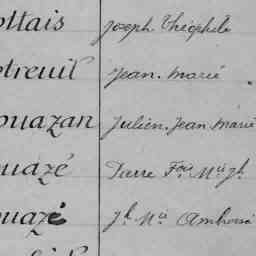 ottais Joseph Théophile
treuil Jean. Marie
ouazan Julien. Jean. Marie
ouazé Pierre Fois Mie Jh
ouazé Jh. Mie Ambroise